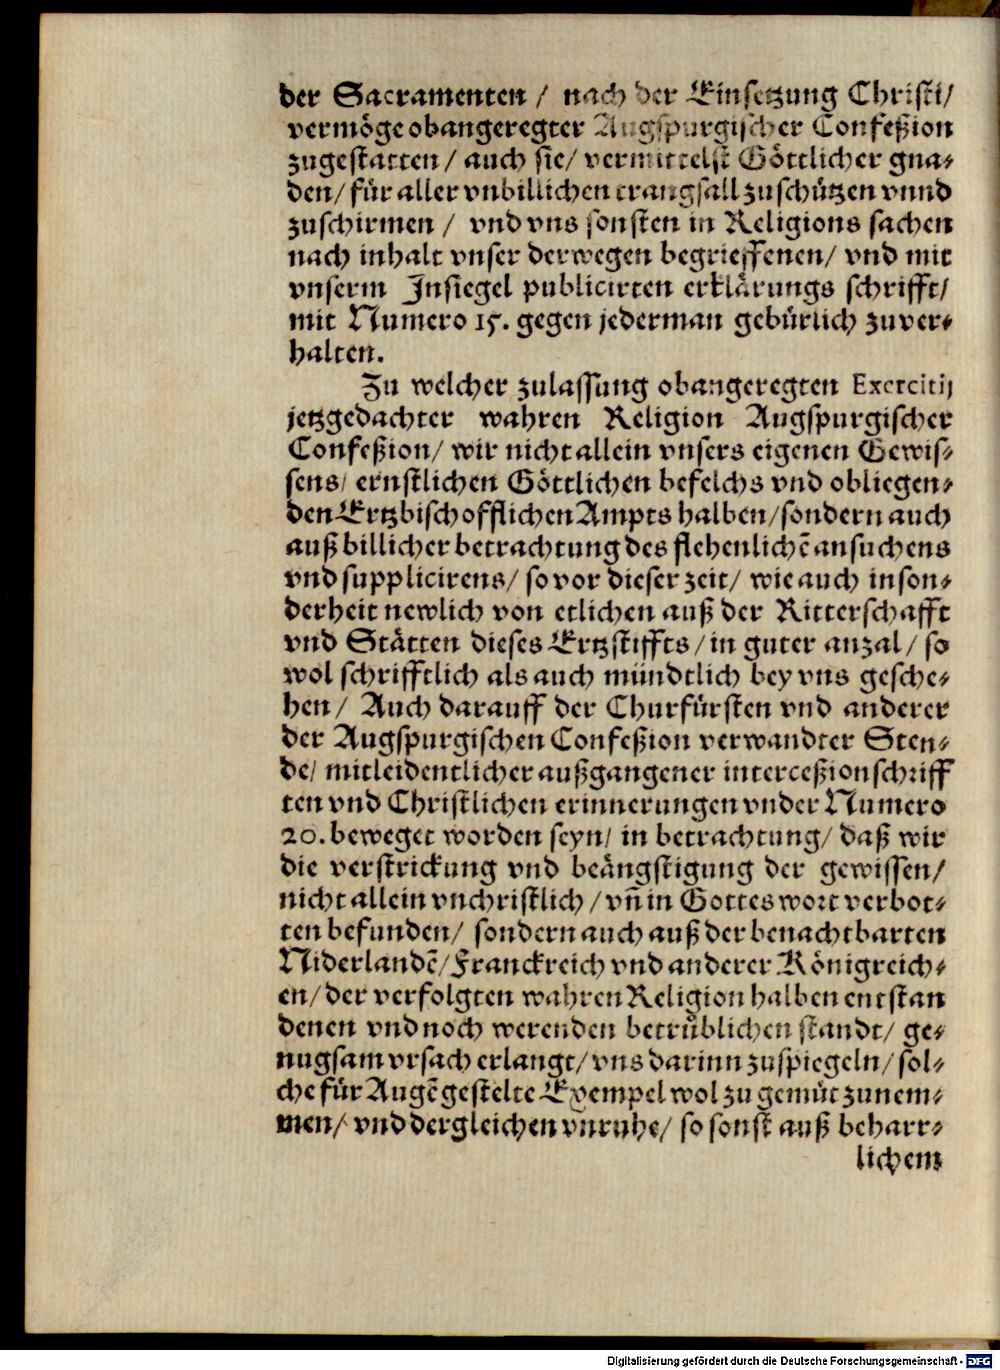 der Sacramenten / nach der Einsetzung Christi/
vermöge obangeregter Augspurgischer Confeßion
zugestatten / auch sie/ vermittelst Göttlicher gna-
den/ für aller vnbillichen trangsall zuschützen vnnd
zuschirmen / vnd vns sonsten in Religions sachen
nach inhalt vnser derwegen begrieffenen/ vnd mit
vnserm Insiegel publicirten erklärungs schrifft/
mit Numero 15. gegen jederman gebürlich zuver-
halten.
Zu welcher zulassung obangeregten Exercitij
jetzgedachter wahren Religion Augspurgischer
Confeßion/ wir nicht allein vnsers eigenen Gewis-
sens/ ernstlichen Göttlichen befelchs vnd obliegen-
den Ertzbischofflichen Ampts halben/ sondern auch
auß billicher betrachtung des flehenlichē ansuchens
vnd supplicirens/ so vor dieser zeit/ wie auch inson-
derheit newlich von etlichen auß der Ritterschafft
vnd Stätten dieses Ertzstiffts / in guter anzal/ so
wol schrifftlich als auch mündtlich bey vns gesche-
hen/ Auch darauff der Churfürsten vnd anderer
der Augspurgischen Confeßion verwandter Sten-
de/ mitleidentlicher außgangener interceßion schriff
ten vnd Christlichen erinnerungen vnder Numero
20. beweget worden seyn/ in betrachtung/ daß wir
die verstrickung vnd beängstigung der gewissen/
nicht allein vnchristlich / vñ in Gottes wort verbot-
ten befunden/ sondern auch auß der benachtbarten
Niderlandē/ Franckreich vnd anderer Königreich-
en/ der verfolgten wahren Religion halben entstan
denen vnd noch werenden betrüblichen standt/ ge-
nugsam vrsach erlangt/ vns darinn zuspiegeln/ sol-
che für Augē gestelte Exempel wol zu gemüt zunem-
men/ vnd dergleichen vnruhe/ so sonst auß beharr-
lichem
Digitalisierung gefördert durch die Deutsche Forschungsgemeinschaft - DFG